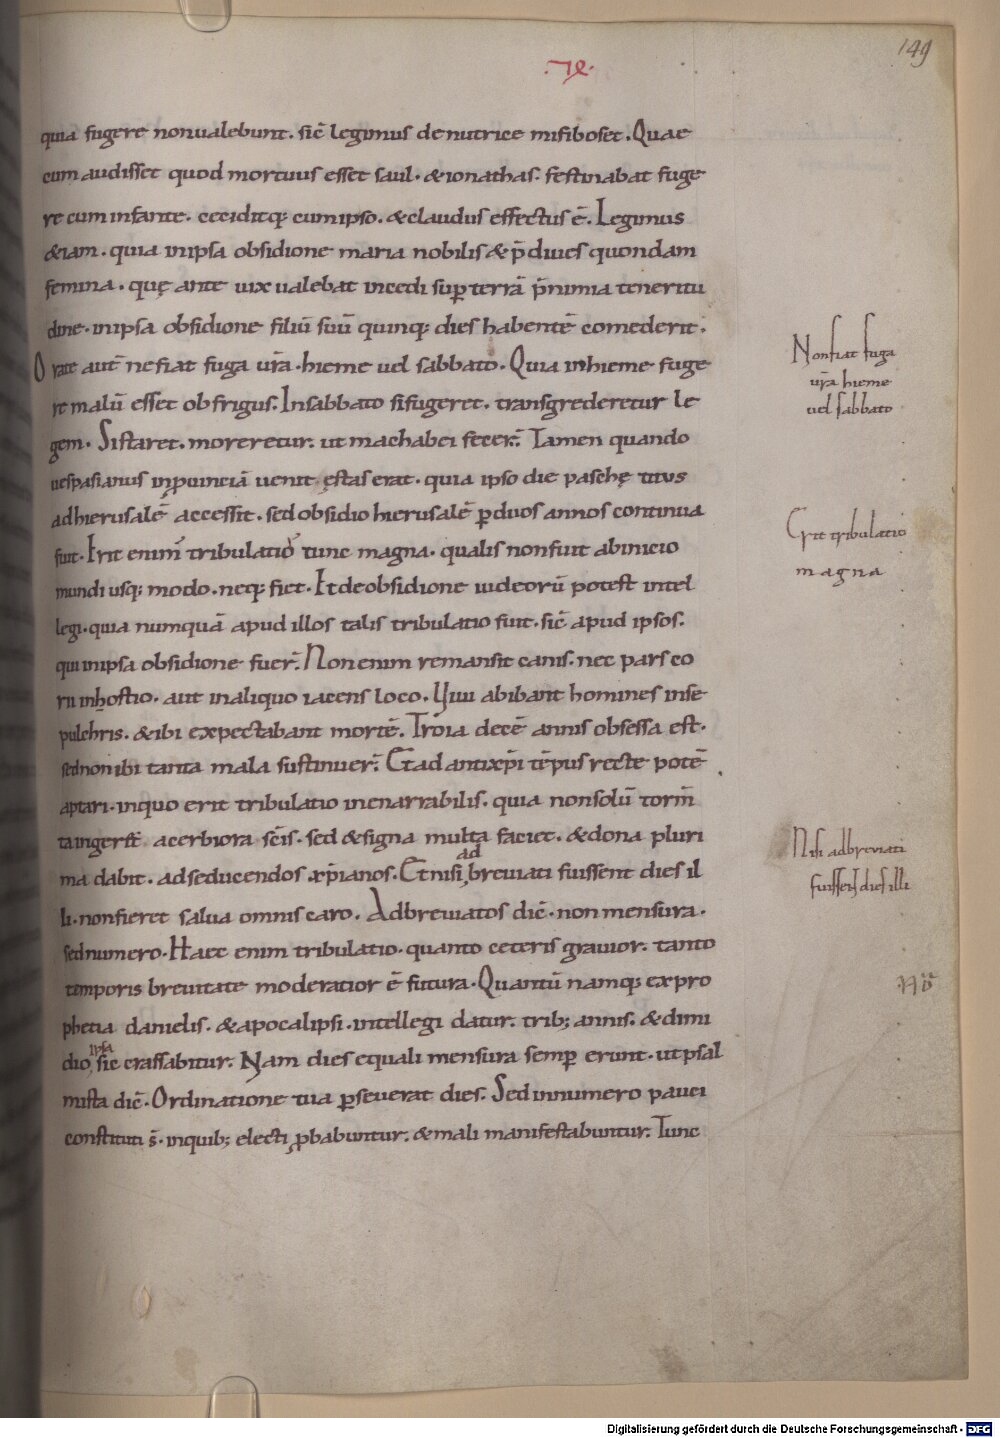 149
quia fugere nonualebunt. sic̄ legimus denutrice misiboset. Quae
cum audisset quod mortuus esset saul. &ionathas. festinabat fuge
re cum infante. ceciditq; cum ipso. &claudus effectus ē. Legimus
&iam. quia inipsa obsidione maria nobilis & p̄diues quondam
femina. quę ante uix ualebat incedi sup̱ terrā p̄nimia teneritu
dine. inipsa obsidione filiū suū quinq; dies habentē comederit.
Orate autē ne fiat fuga ur̄a. hieme uel sabbato. Quia inhieme fuge
re malū esset ob frigus. Insabbato si fugeret. transgrederetur le
gem. Si staret. moreretur. ut machabei fecer̄. Tamen quando
uespasianus inꝓuinciā uenit. ęstas erat. quia ipso die paschę titus
adhierusalē accessit. sed obsidio hierusalē ꝑ duos annos continua
fuit. Erit enim tribulatio tunc magna. qualis nonfuit abinicio
mundi usq; modo. neq; fiet. Et de obsidione iudeorū potest intel
legi. quia numquā apud illos talis tribulatio fuit. sic̄ apud ipsos.
qui inipsa obsidione fuer̄. Non enim remansit canis. nec pars co
rii inhostio. aut inaliquo iacens loco. Uiui abibant homines inse
pulchris. &ibi expectabant mortē. Troia decē annis obsessa est.
sed non ibi tanta mala sustinuer̄. Et ad antixp̄i tēpus recte potē
aptari. inquo erit tribulatio inenarrabilis. quia nonsolū torm̄
ta ingerit̄ acerbiora sc̄is. sed &signa multa faciet. &dona pluri
ma dabit. ad seducendos xp̄ianos. Et nisi breuiati fuissent dies il
ad
li. non fieret salua omnis caro. Adbreuiatos dic̄. non mensura.
sed numero. Haec enim tribulatio. quanto ceteris grauior. tanto
temporis breuitate moderatior ē futura. Quantū namq; ex pro
phetia danielis. &apocalipsi. intellegi datur. trib; annis. & dimi
dio sic crassabitur. Nam dies equali mensura semꝑ erunt. ut psal
ipsa
mista dic̄. Ordinatione tua ꝑseuerat dies. Sed innumero pauci
constituti s̄. inquib; electi ꝓbabuntur. &mali manifestabuntur. Tunc
Non fiat fuga
ur̄a hieme
uel sabbato
Erit tribulatio
magna
Nisi adbreuiati
fuissent dies illi
Digitalisierung gefördert durch die Deutsche Forschungsgemeinschaft - DFG